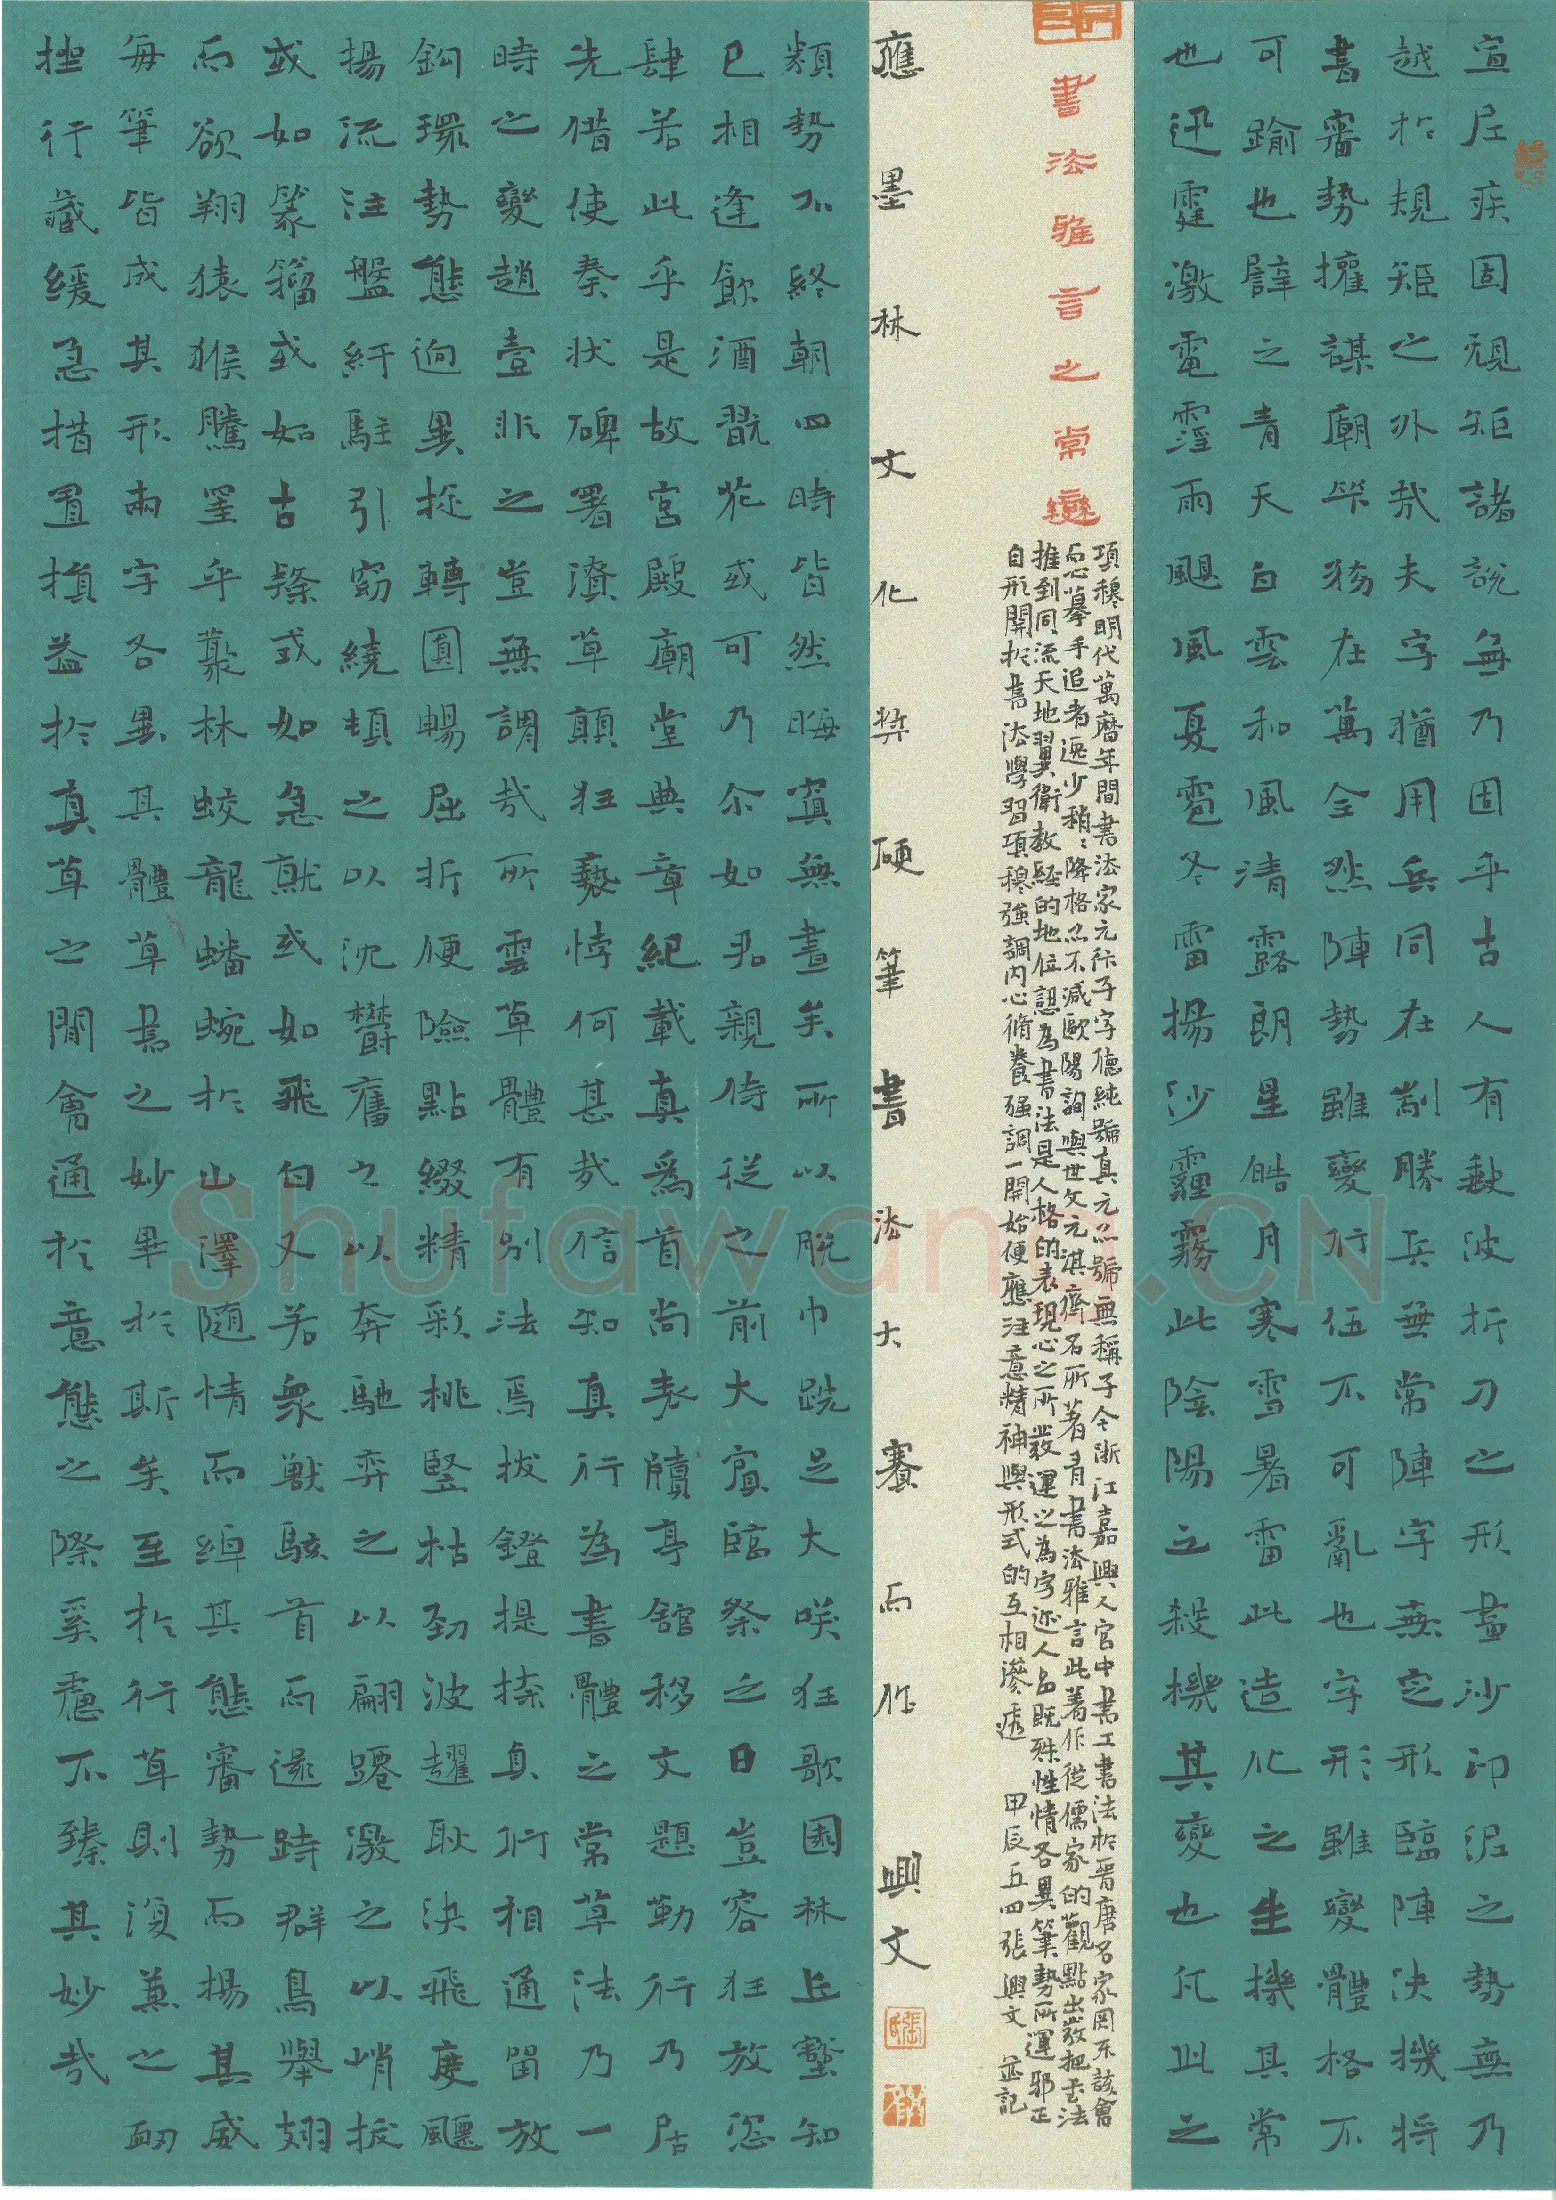 宣尼疾固硯矩諸說無乃固乎古人有缺波折刀之形畫沙印泥之勢無乃
越於規矩之外哉夫字猶用兵同在制勝兵無常陣字無定形臨陣決機將
書審勢權謀廟筭務在萬全然陣勢雖變行伍不可亂也字形雖變體格不
可踰也譬之青天白雲和風清露朗星皓月寒雪暑雷此造化之生機其常
也迅霆激電霪雨颶風夏雹冬雷揚沙霾霧此陰陽之殺機其變也凡此之
書法雅言之常變
項穆明代萬曆年間書法家元汴子字德純號真元亦號無稱子今浙江嘉興人官中書工書法於晉唐名家罔不該會
而心摹手追者逸少稍稍降格亦不減歐陽詢與世文元淇齊名所著有書法雅言此著作從儒家的觀點出發把書法
推到同流天地翼衛教經的地位認為書法是人格的表現心之所發運之為字迹人品既殊性情各異筆勢所運邪正
自形關於書法學習項穆強調內心脩養强調一開始便應注意精神與形式的互相滲透 甲辰五四張興文並記
應墨林文化獎硬筆書法大賽而作 興文
類勢不終朝四時皆然晦冥無晝矣所以脫巾跣足大咲狂歌園林丘壑知
己相逢飲酒翫花或可乃尔如君親侍從之前大賓臨祭之日豈容狂放恣
肆若此乎是故宮殿廟堂典章紀載真為首尚表牘亭館移文題勒行乃居
先借使奏狀碑署潰草顛狂褻悖何甚哉信知真行為書體之常草法乃一
時之變趙壹非之豈無謂哉所雲草體有別法焉拔鐙提捺真行相通留放
鈎環勢態迥異挺轉圓暢屈折便險點綴精彩桃豎枯勁波趯耿決飛度飄
揚流注盤紆駐引窈繞頓之以沈欝奮之以奔馳弈之以翩躚激之以峭拔
或如篆籀或如古隸或如急就或如飛白又若衆獸駭首而還跱群鳥舉翅
而欲翔猿猴騰罣乎叢林蛟龍蟠蜿於山澤隨情而綽其態審勢而揚其威
每筆皆成其形兩字各異其體草書之妙畢於斯矣至於行草則復兼之衄
挫行藏緩急措置損益於真草之間會通於意態之際奚慮不臻其妙哉
Shufawang.CN